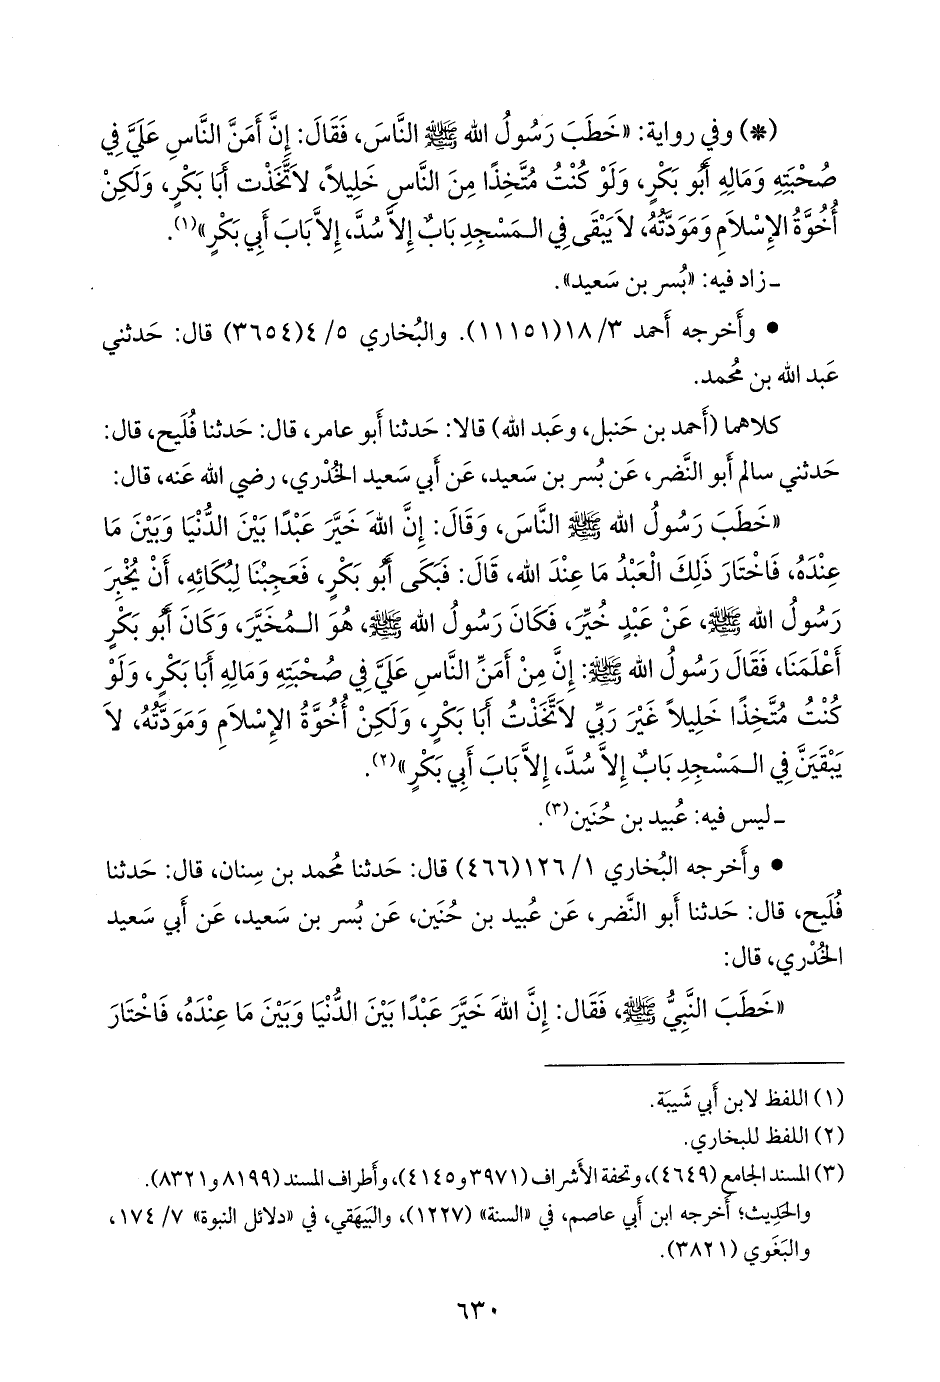 (*) وفي رواية: «خَطَبَ رَسُولُ الله ﷺ النَّاسَ، فَقَالَ: إِنَّ أَمَنَّ النَّاسِ عَلَيَّ فِي
صُحْبَتِهِ وَمَالِهِ أَبُو بَكْرٍ، وَلَوْ كُنْتُ مُتَّخِذًا مِنَ النَّاسِ خَلِيلاً، لاَتَّخَذْت أَبَا بَكْرٍ، وَلَكِنْ
أُخُوَّةُ الإِسْلاَمِ وَمَوَدَّتُهُ، لاَ يَبْقَى فِي الـمَسْجِدِ بَابٌ إِلاَّ سُدَّ، إِلاَّ بَابَ أَبِي بَكْرٍ»(١).
ـ زاد فيه: «بُسر بن سَعيد».
• وأَخرجه أَحمد ٣/ ١٨(١١١٥١). والبُخاري ٥/ ٤(٣٦٥٤) قال: حَدثني
عَبد الله بن مُحمد.
كلاهما (أَحمد بن حَنبل، وعَبد الله) قالا: حَدثنا أَبو عامر، قال: حَدثنا فُلَيح، قال:
حَدثني سالم أَبو النَّضر، عَن بُسر بن سَعيد، عَن أَبي سَعيد الخُدْري، رضي الله عَنه، قال:
«خَطَبَ رَسُولُ الله ﷺ النَّاسَ، وَقَالَ: إِنَّ اللهَ خَيَّرَ عَبْدًا بَيْنَ الدُّنْيَا وَبَيْنَ مَا
عِنْدَهُ، فَاخْتَارَ ذَلِكَ الْعَبْدُ مَا عِنْدَ الله، قَالَ: فَبَكَى أَبُو بَكْرٍ، فَعَجِبْنَا لِبُكَائِهِ، أَنْ يُخْبِرَ
رَسُولُ الله ﷺ، عَنْ عَبْدٍ خُيِّرَ، فَكَانَ رَسُولُ الله ﷺ، هُوَ الـمُخَيَّرَ، وَكَانَ أَبُو بَكْرٍ
أَعْلَمَنَا، فَقَالَ رَسُولُ الله ﷺ: إِنَّ مِنْ أَمَنِّ النَّاسِ عَلَيَّ فِي صُحْبَتِهِ وَمَالِهِ أَبَا بَكْرٍ، وَلَوْ
كُنْتُ مُتَّخِذًا خَلِيلاً غَيْرَ رَبِّي لاَتَّخَذْتُ أَبَا بَكْرٍ، وَلَكِنْ أُخُوَّةُ الإِسْلاَمِ وَمَوَدَّتُهُ، لاَ
يَبْقَيَنَّ فِي الـمَسْجِدِ بَابٌ إِلاَّ سُدَّ، إِلاَّ بَابَ أَبِي بَكْرٍ»(٢).
ـ ليس فيه: عُبيد بن حُنَين(٣).
• وأَخرجه البُخاري ١/ ١٢٦(٤٦٦) قال: حَدثنا مُحمد بن سِنان، قال: حَدثنا
فُلَيح، قال: حَدثنا أَبو النَّضر، عَن عُبيد بن حُنَين، عَن بُسر بن سَعيد، عَن أَبي سَعيد
الخُدْري، قال:
«خَطَبَ النَّبِيُّ ﷺ، فَقَال: إِنَّ اللهَ خَيَّرَ عَبْدًا بَيْنَ الدُّنْيَا وَبَيْنَ مَا عِنْدَهُ، فَاخْتَارَ
(١) اللفظ لابن أَبي شَيبَة.
(٢) اللفظ للبخاري.
(٣) المسند الجامع (٤٦٤٩)، وتحفة الأَشراف (٣٩٧١ و٤١٤٥)، وأَطراف المسند (٨١٩٩ و٨٣٢١).
والحَدِيث؛ أَخرجه ابن أَبي عاصم، في «السنة» (١٢٢٧)، والبَيهَقي، في «دلائل النبوة» ٧/ ١٧٤،
والبَغَوي (٣٨٢١).
٦٣٠